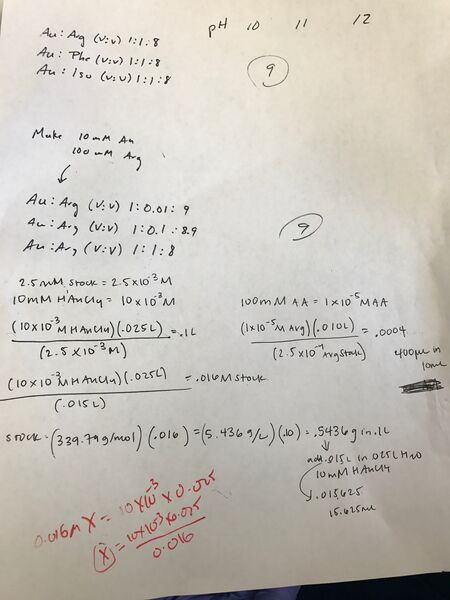 pH 10 11 12
Au: Arg (v:v) 1:1:8
Au: Phe (v:v) 1:1:8
Au: Iso (v:v) 1:1:8
9
Make 10mM Au
100mM Arg
Au: Arg (v:v) 1:0.01:9
Au: Arg (v:v) 1:0.1:8.9
Au: Arg (v:v) 1:1:8
9
2.5mM stock = 2.5x10⁻³M
10mM HAuCl4 = 10x10⁻³M
(10x10⁻³M HAuCl4)(.025L) = .1L
(2.5x10⁻³M)
100mM AA = 1x10⁻⁵M AA
(1x10⁻⁵M Arg)(.010L) = .0004
(2.5x10⁻⁴ Arg Stock)
400µL in
10mL
(10x10⁻³M HAuCl4)(.025L) = .016M stock
(.015L)
stock = (339.79g/mol)(.016) = (5.436g/L)(.10) = .5436g in .1L
add .015L in .025L H2O
10mM HAuCl4
.015625
15.625mL
0.016M X = 10x10⁻³ x 0.025
X = 10x10⁻³x0.025
0.016